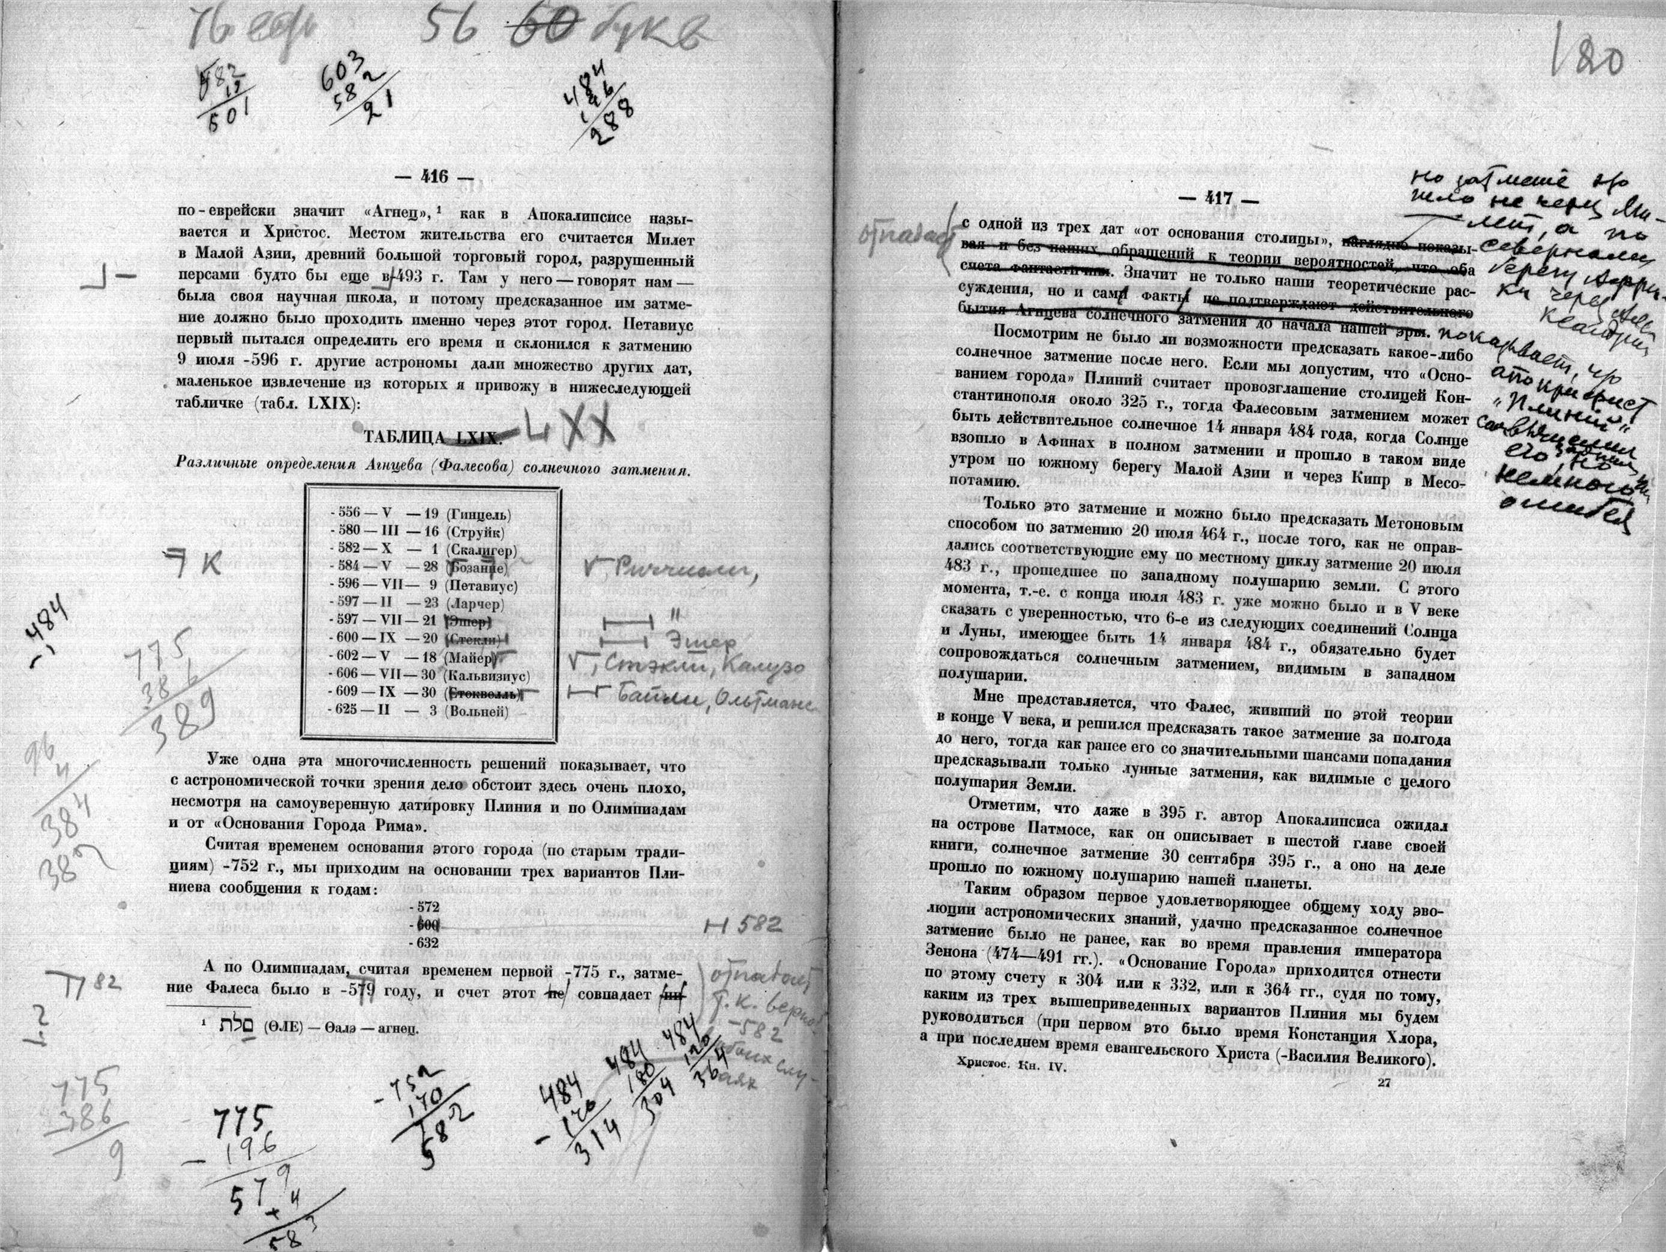 56 60 букв
582
19
501
603
582
21
484
96
288
— 416 —
по-еврейски значит «Агнец»,¹ как в Апокалипсисе назы-
вается и Христос. Местом жительства его считается Милет
в Малой Азии, древний большой торговый город, разрушенный
персами будто бы еще в 493 г. Там у него — говорят нам —
была своя научная школа, и потому предсказанное им затме-
ние должно было проходить именно через этот город. Петавиус
первый пытался определить его время и склонился к затмению
9 июля -596 г. другие астрономы дали множество других дат,
маленькое извлечение из которых я привожу в нижеследующей
табличке (табл. LXIX):
ТАБЛИЦА LXIX. LXX
Различные определения Агнцева (Фалесова) солнечного затмения.
-556 — V — 19 (Гинцель)
-580 — III — 16 (Струйк)
-582 — X — 1 (Скалигер)
-584 — V — 28 (Бозанне) Риччиоли,
-596 — VII — 9 (Петавиус)
-597 — II — 23 (Ларчер)
-597 — VII — 21 (Эшер) "
-600 — IX — 20 (Стекли) Эшер
-602 — V — 18 (Майер) , Стэкли, Калузо
-606 — VII — 30 (Кальвизиус)
-609 — IX — 30 (Стоквелль) Байли, Ольтманс
-625 — II — 3 (Вольней)
К
-484
775
386
389
96
4
384
382
Уже одна эта многочисленность решений показывает, что
с астрономической точки зрения дело обстоит здесь очень плохо,
несмотря на самоуверенную датировку Плиния и по Олимпиадам
и от «Основания Города Рима».
Считая временем основания этого города (по старым тради-
циям) -752 г., мы приходим на основании трех вариантов Пли-
ниева сообщения к годам:
-572
-600 582
-632
А по Олимпиадам, считая временем первой -775 г., затме-
ние Фалеса было в -579 году, и счет этот не совпадает ни
82
отпадает
т.к. верно
-582
¹ תלם (ӨЛЕ) — Өалэ — агнец.
775
386
9
775
- 196
579
+ 4
583
- 752
170
582
484
- 170
314
484
180
304
484
120
364
180
— 417 —
с одной из трех дат «от основания столицы», наглядно показы-
вая и без наших обращений к теории вероятностей, что оба
счета фантастичны. Значит не только наши теоретические рас-
суждения, но и сами факты не подтверждают действительного
бытия Агнцева солнечного затмения до начала нашей эры.
отпадает
но затмение это
шло не через Ми-
лет, а по
северному
берегу Африки
через
показывает, что
апокрифист
"Плиний"
его, но
немного
ошибся
Посмотрим не было ли возможности предсказать какое-либо
солнечное затмение после него. Если мы допустим, что «Осно-
ванием города» Плиний считает провозглашение столицей Кон-
стантинополя около 325 г., тогда Фалесовым затмением может
быть действительное солнечное 14 января 484 года, когда Солнце
взошло в Афинах в полном затмении и прошло в таком виде
утром по южному берегу Малой Азии и через Кипр в Месо-
потамию.
Только это затмение и можно было предсказать Метоновым
способом по затмению 20 июля 464 г., после того, как не оправ-
дались соответствующие ему по местному циклу затмение 20 июля
483 г., прошедшее по западному полушарию земли. С этого
момента, т.-е. с конца июля 483 г. уже можно было и в V веке
сказать с уверенностью, что 6-е из следующих соединений Солнца
и Луны, имеющее быть 14 января 484 г., обязательно будет
сопровождаться солнечным затмением, видимым в западном
полушарии.
Мне представляется, что Фалес, живший по этой теории
в конце V века, и решился предсказать такое затмение за полгода
до него, тогда как ранее его со значительными шансами попадания
предсказывали только лунные затмения, как видимые с целого
полушария Земли.
Отметим, что даже в 395 г. автор Апокалипсиса ожидал
на острове Патмосе, как он описывает в шестой главе своей
книги, солнечное затмение 30 сентября 395 г., а оно на деле
прошло по южному полушарию нашей планеты.
Таким образом первое удовлетворяющее общему ходу эво-
люции астрономических знаний, удачно предсказанное солнечное
затмение было не ранее, как во время правления императора
Зенона (474—491 гг.). «Основание Города» приходится отнести
по этому счету к 304 или к 332, или к 364 гг., судя по тому,
каким из трех вышеприведенных вариантов Плиния мы будем
руководиться (при первом это было время Констанция Хлора,
а при последнем время евангельского Христа (-Василия Великого).
Христос. Кн. IV.
27